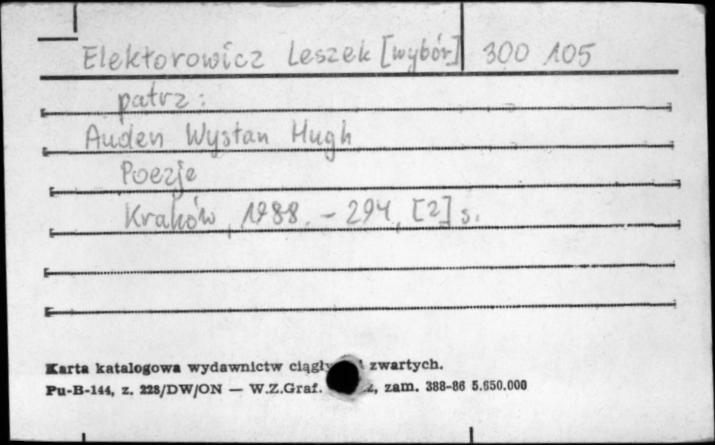 Elektorowicz Leszek [wybór] 300 105
patrz:
Auden Wystan Hugh
Poezje
Kraków, 1988. - 294, [2] s.
Karta katalogowa wydawnictw zwartych.
Pu-B-144, z. 228/DW/ON — W.Z.Graf. zam. 388-86 5.650.000